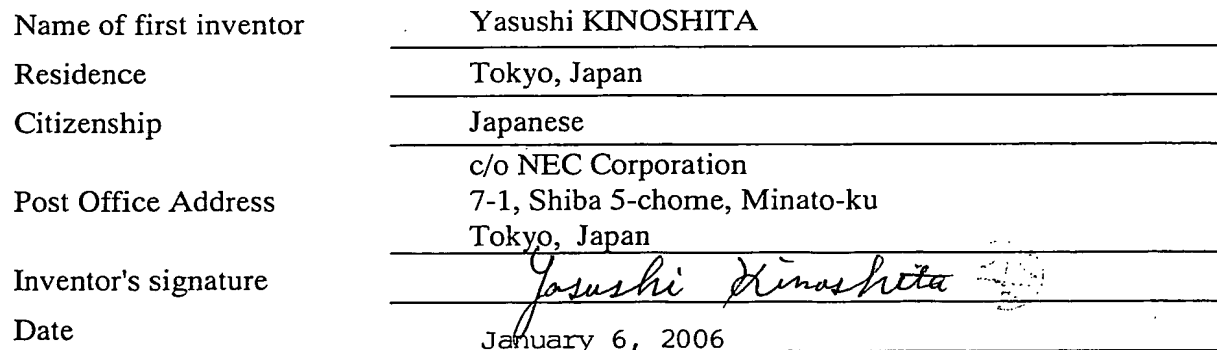 Name of first inventor Yasushi KINOSHITA
Residence Tokyo, Japan
Citizenship Japanese
c/o NEC Corporation
Post Office Address 7-1, Shiba 5-chome, Minato-ku
Tokyo, Japan
Inventor's signature Yasushi Kinoshita
Date January 6, 2006